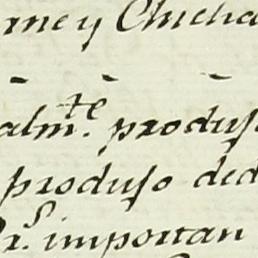 me y Chicha
alm.te produjo
produjo ded
r.s importan